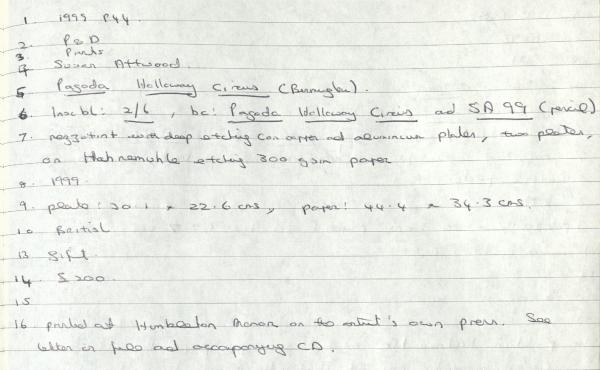 1 1999 P.44.
2. P&D
3. Prints
4. Susan Attwood.
5. Pagoda Holloway Circus (Birmingham).
6. Inscr bl: 2/6, bc: Pagoda Holloway Circus and SA 99 (pencil)
7. mezzotint with deep etching (on copper and aluminium plates, two plates,
on Hahnemuhle etching 300 gsm paper
8. 1999.
9. plate: 30.1 x 22.6 cms, paper: 44.4 x 34.3 cms.
10 British
13 gift
14. £200.
15
16 printed at Humbleton Manor on the artist's own press. See
letter in file and accompanying CD.